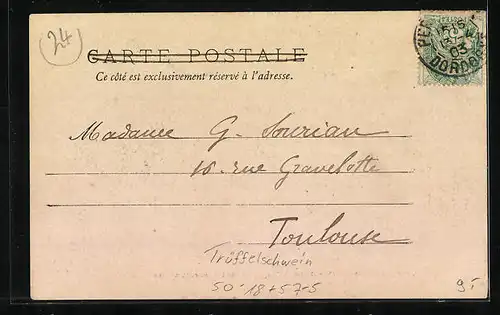 24
CARTE POSTALE
Ce côté est exclusivement réservé à l'adresse.
03
DORDOGNE
Madame G. Sourian
16 rue Gravelotte
Toulouse
Trüffelschwein
50-18+57-5
9.-